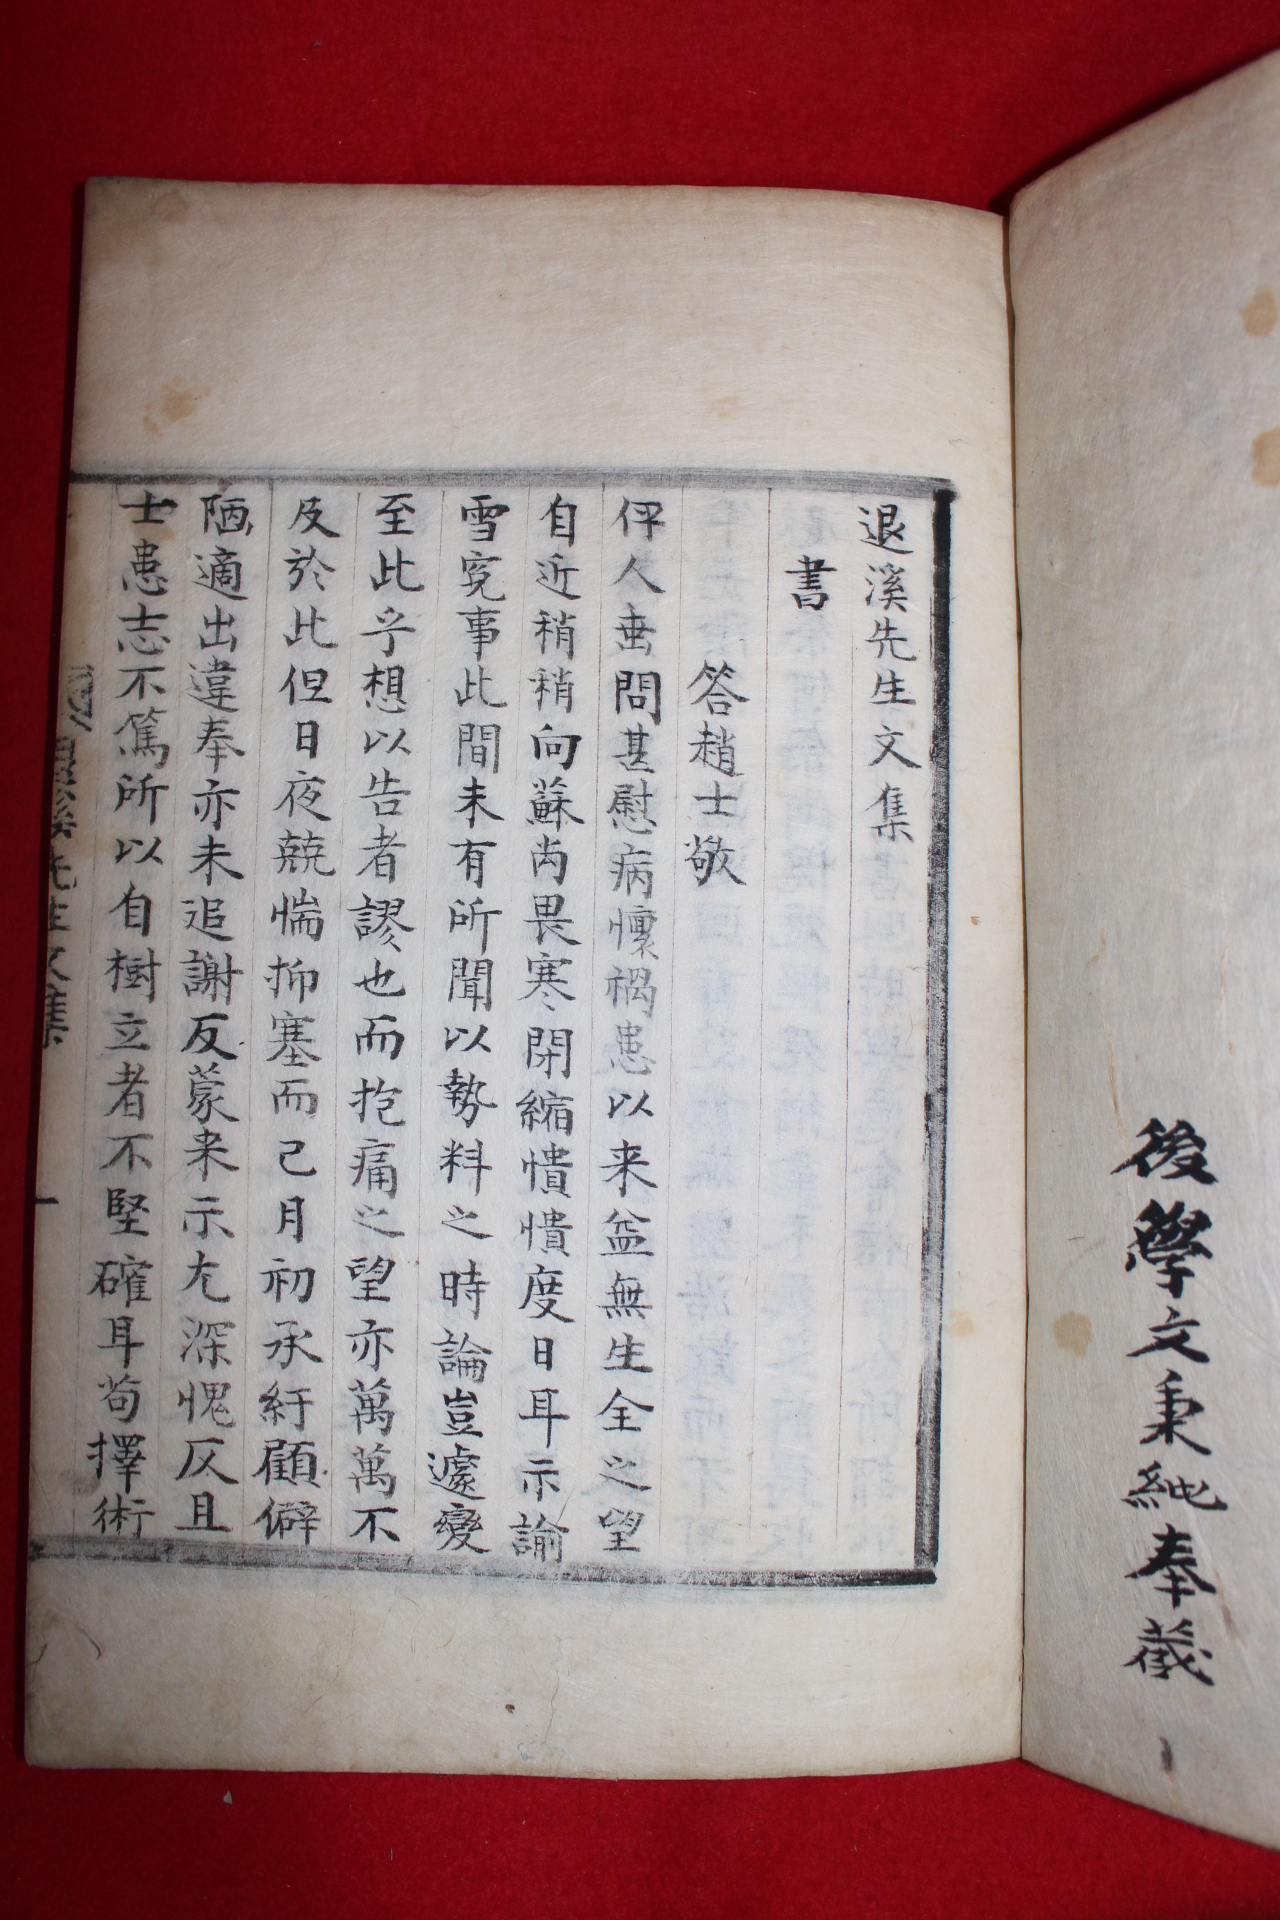 後學文秉紞奉菆
退溪先生文集
書
答趙士敬
伻人垂問甚慰病懷禍患以来益無生全之望
自近稍稍向蘇尚畏寒閉縮憒憒度日耳示諭
雪寃事此間未有所聞以勢料之時論豈遽變
至此乎想以告者謬也而抱痛之望亦萬萬不
及於此但日夜兢惴抑塞而已月初承紆顧僻
陋適出違奉亦未追謝反蒙来示尤深愧仄且
士患志不篤所以自樹立者不堅確耳苟擇術
退溪先生文集
一